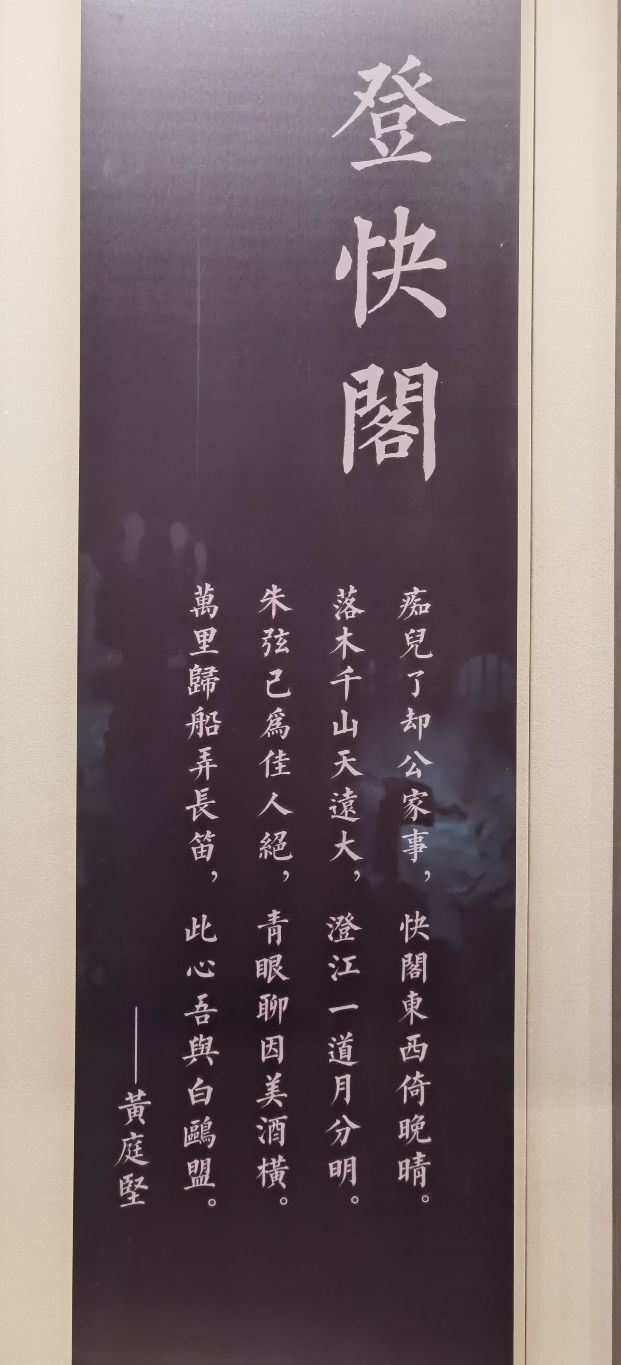 登快閣
痴兒了却公家事，快閣東西倚晚晴。
落木千山天遠大，澄江一道月分明。
朱弦已為佳人絕，青眼聊因美酒橫。
萬里歸船弄長笛，此心吾與白鷗盟。
——黃庭堅